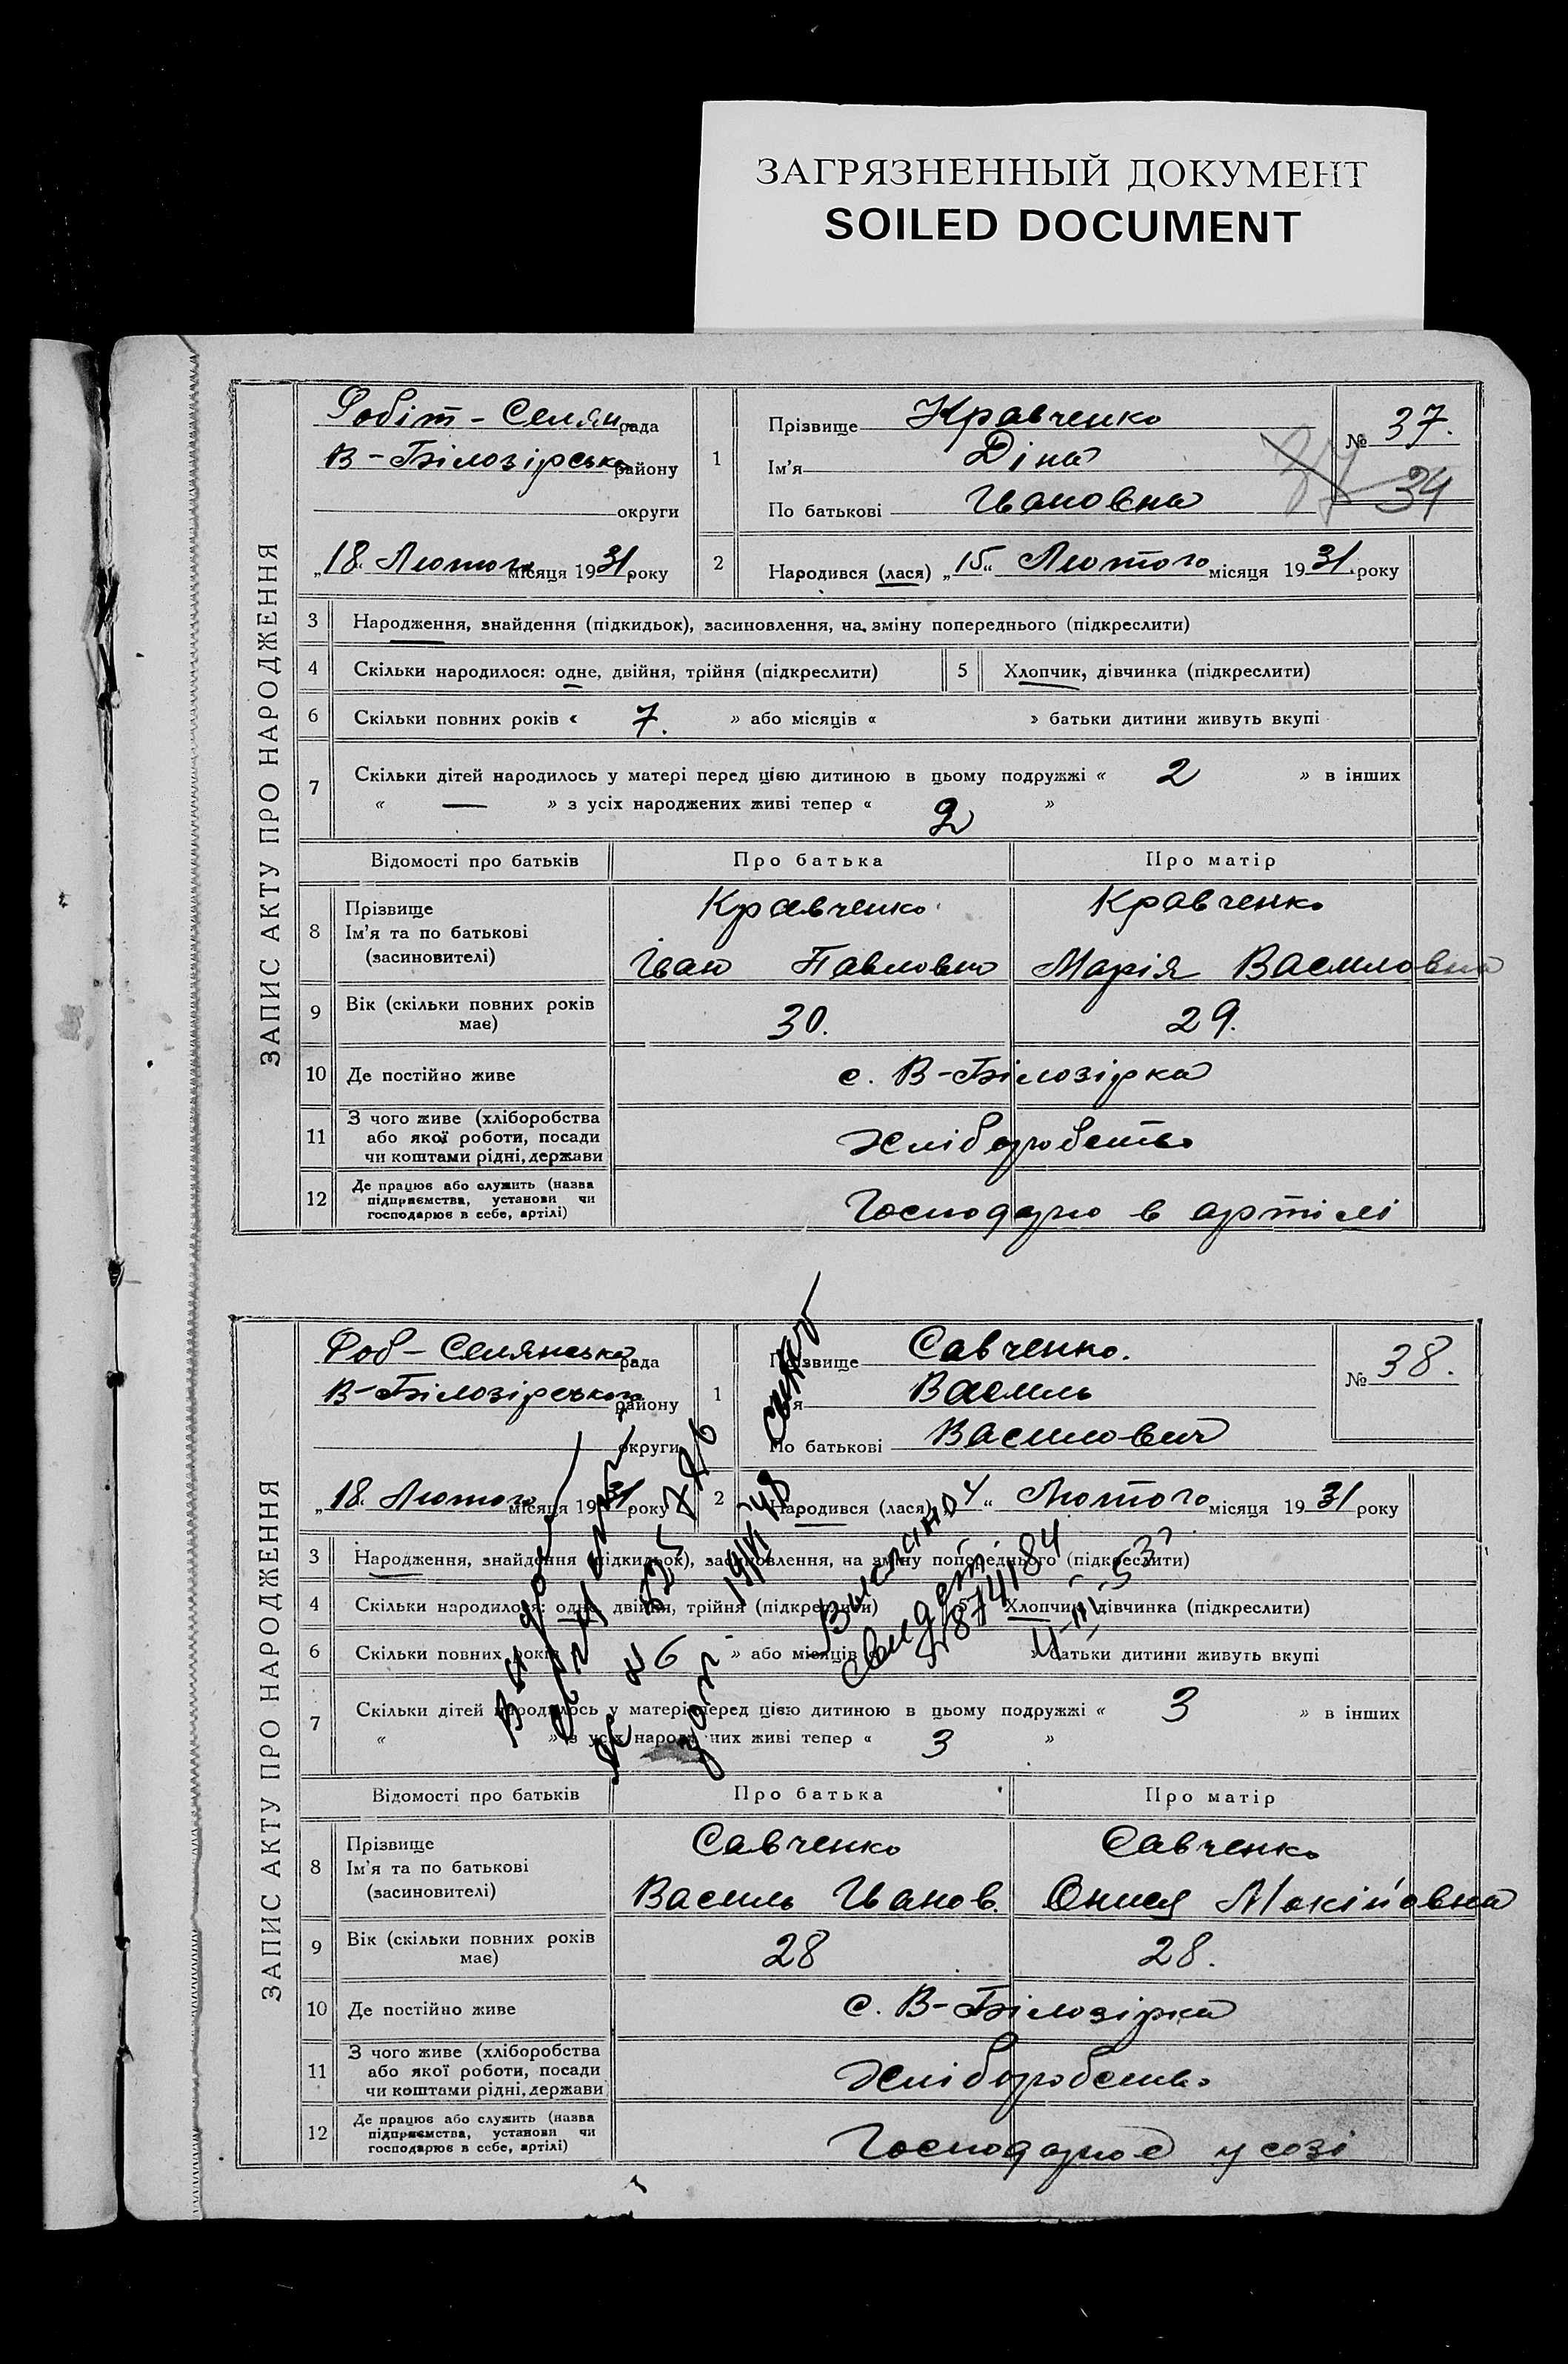 ЗАГРЯЗНЕННЫЙ ДОКУМЕНТ
SOILED DOCUMENT
ЗАПИС АКТУ ПРО НАРОДЖЕННЯ
Робіт-Селян рада
В-Білозірська району
округи
„18. Лютого місяця 1931 року
1 Прізвище Кравченко
Ім'я Діна
По батькові Івановна
№ 37.
34
2 Народився (лася) „15“ Лютого місяця 1931 року
3 Народження, знайдення (підкидьок), засиновлення, на зміну попереднього (підкреслити)
4 Скільки народилося: одне, двійня, трійня (підкреслити) 5 Хлопчик, дівчинка (підкреслити)
6 Скільки повних років « 7. » або місяців « » батьки дитини живуть вкупі
7 Скільки дітей народилось у матері перед цією дитиною в цьому подружжі « 2 » в інших
« — » з усіх народжених живі тепер « 2 »
Відомості про батьків Про батька Про матір
8 Прізвище
Ім'я та по батькові
(засиновителі)
Кравченко Кравченко
Іван Павлович Марія Василовна
9 Вік (скільки повних років
має)
30. 29.
10 Де постійно живе с. В-Білозірка
11 З чого живе (хліборобства
або якої роботи, посади
чи коштами рідні, держави
Хліборобство
12 Де працює або служить (назва
підприємства, установи чи
господарює в себе, артілі)
Господарю в артілі
ЗАПИС АКТУ ПРО НАРОДЖЕННЯ
Роб-Селянська рада
В-Білозірського району
округи
„18. Лютого місяця 1931 року
1 Прізвище Савченко.
Ім'я Василь
По батькові Василович
№ 38.
2 Народився (лася) „4“ Лютого місяця 1931 року
3 Народження, знайдення (підкидьок), засиновлення, на зміну попереднього (підкреслити)
4 Скільки народилося: одне, двійня, трійня (підкреслити) 5 Хлопчик, дівчинка (підкреслити)
6 Скільки повних років « 6 » або місяців « » батьки дитини живуть вкупі
7 Скільки дітей народилось у матері перед цією дитиною в цьому подружжі « 3 » в інших
« » з усіх народжених живі тепер « 3 »
Відомості про батьків Про батька Про матір
8 Прізвище
Ім'я та по батькові
(засиновителі)
Савченко Савченко
Василь Іванов. Онися Мокійовна
9 Вік (скільки повних років
має)
28 28.
10 Де постійно живе с. В-Білозірка
11 З чого живе (хліборобства
або якої роботи, посади
чи коштами рідні, держави
Хліборобство
12 Де працює або служить (назва
підприємства, установи чи
господарює в себе, артілі)
Господарює у созі